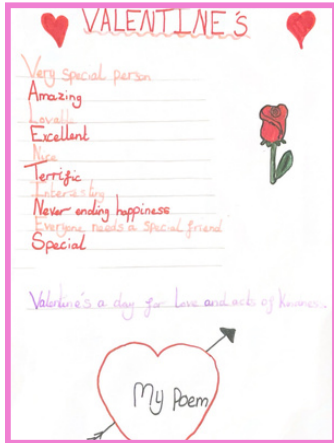 VALENTINE'S
Very special person
Amazing
Excellent
Nice
Terrific
Interesting
Never ending happiness
Everyone needs a special friend
Special
Valentine's a day for Love and acts of
My Poem